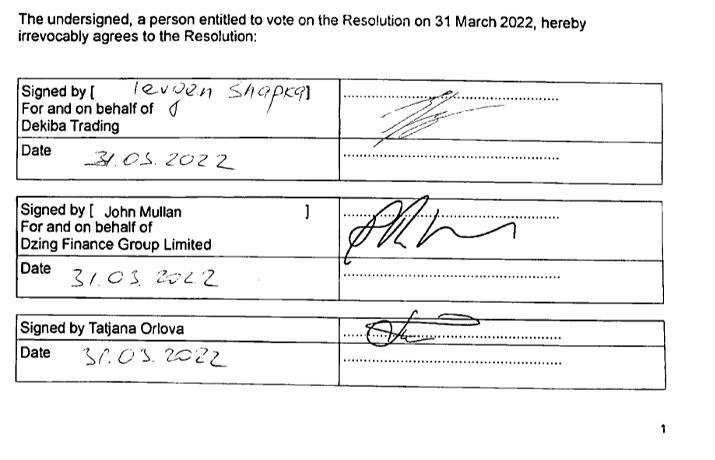 The undersigned, a person entitled to vote on the Resolution on 31 March 2022, hereby
irrevocably agrees to the Resolution:
Signed by [ Ievgen Shapka]
For and on behalf of
Dekiba Trading
Date 31.03.2022
Signed by [ John Mullan ]
For and on behalf of
Dzing Finance Group Limited
Date 31.03.2022
Signed by Tatjana Orlova
Date 31.03.2022
1